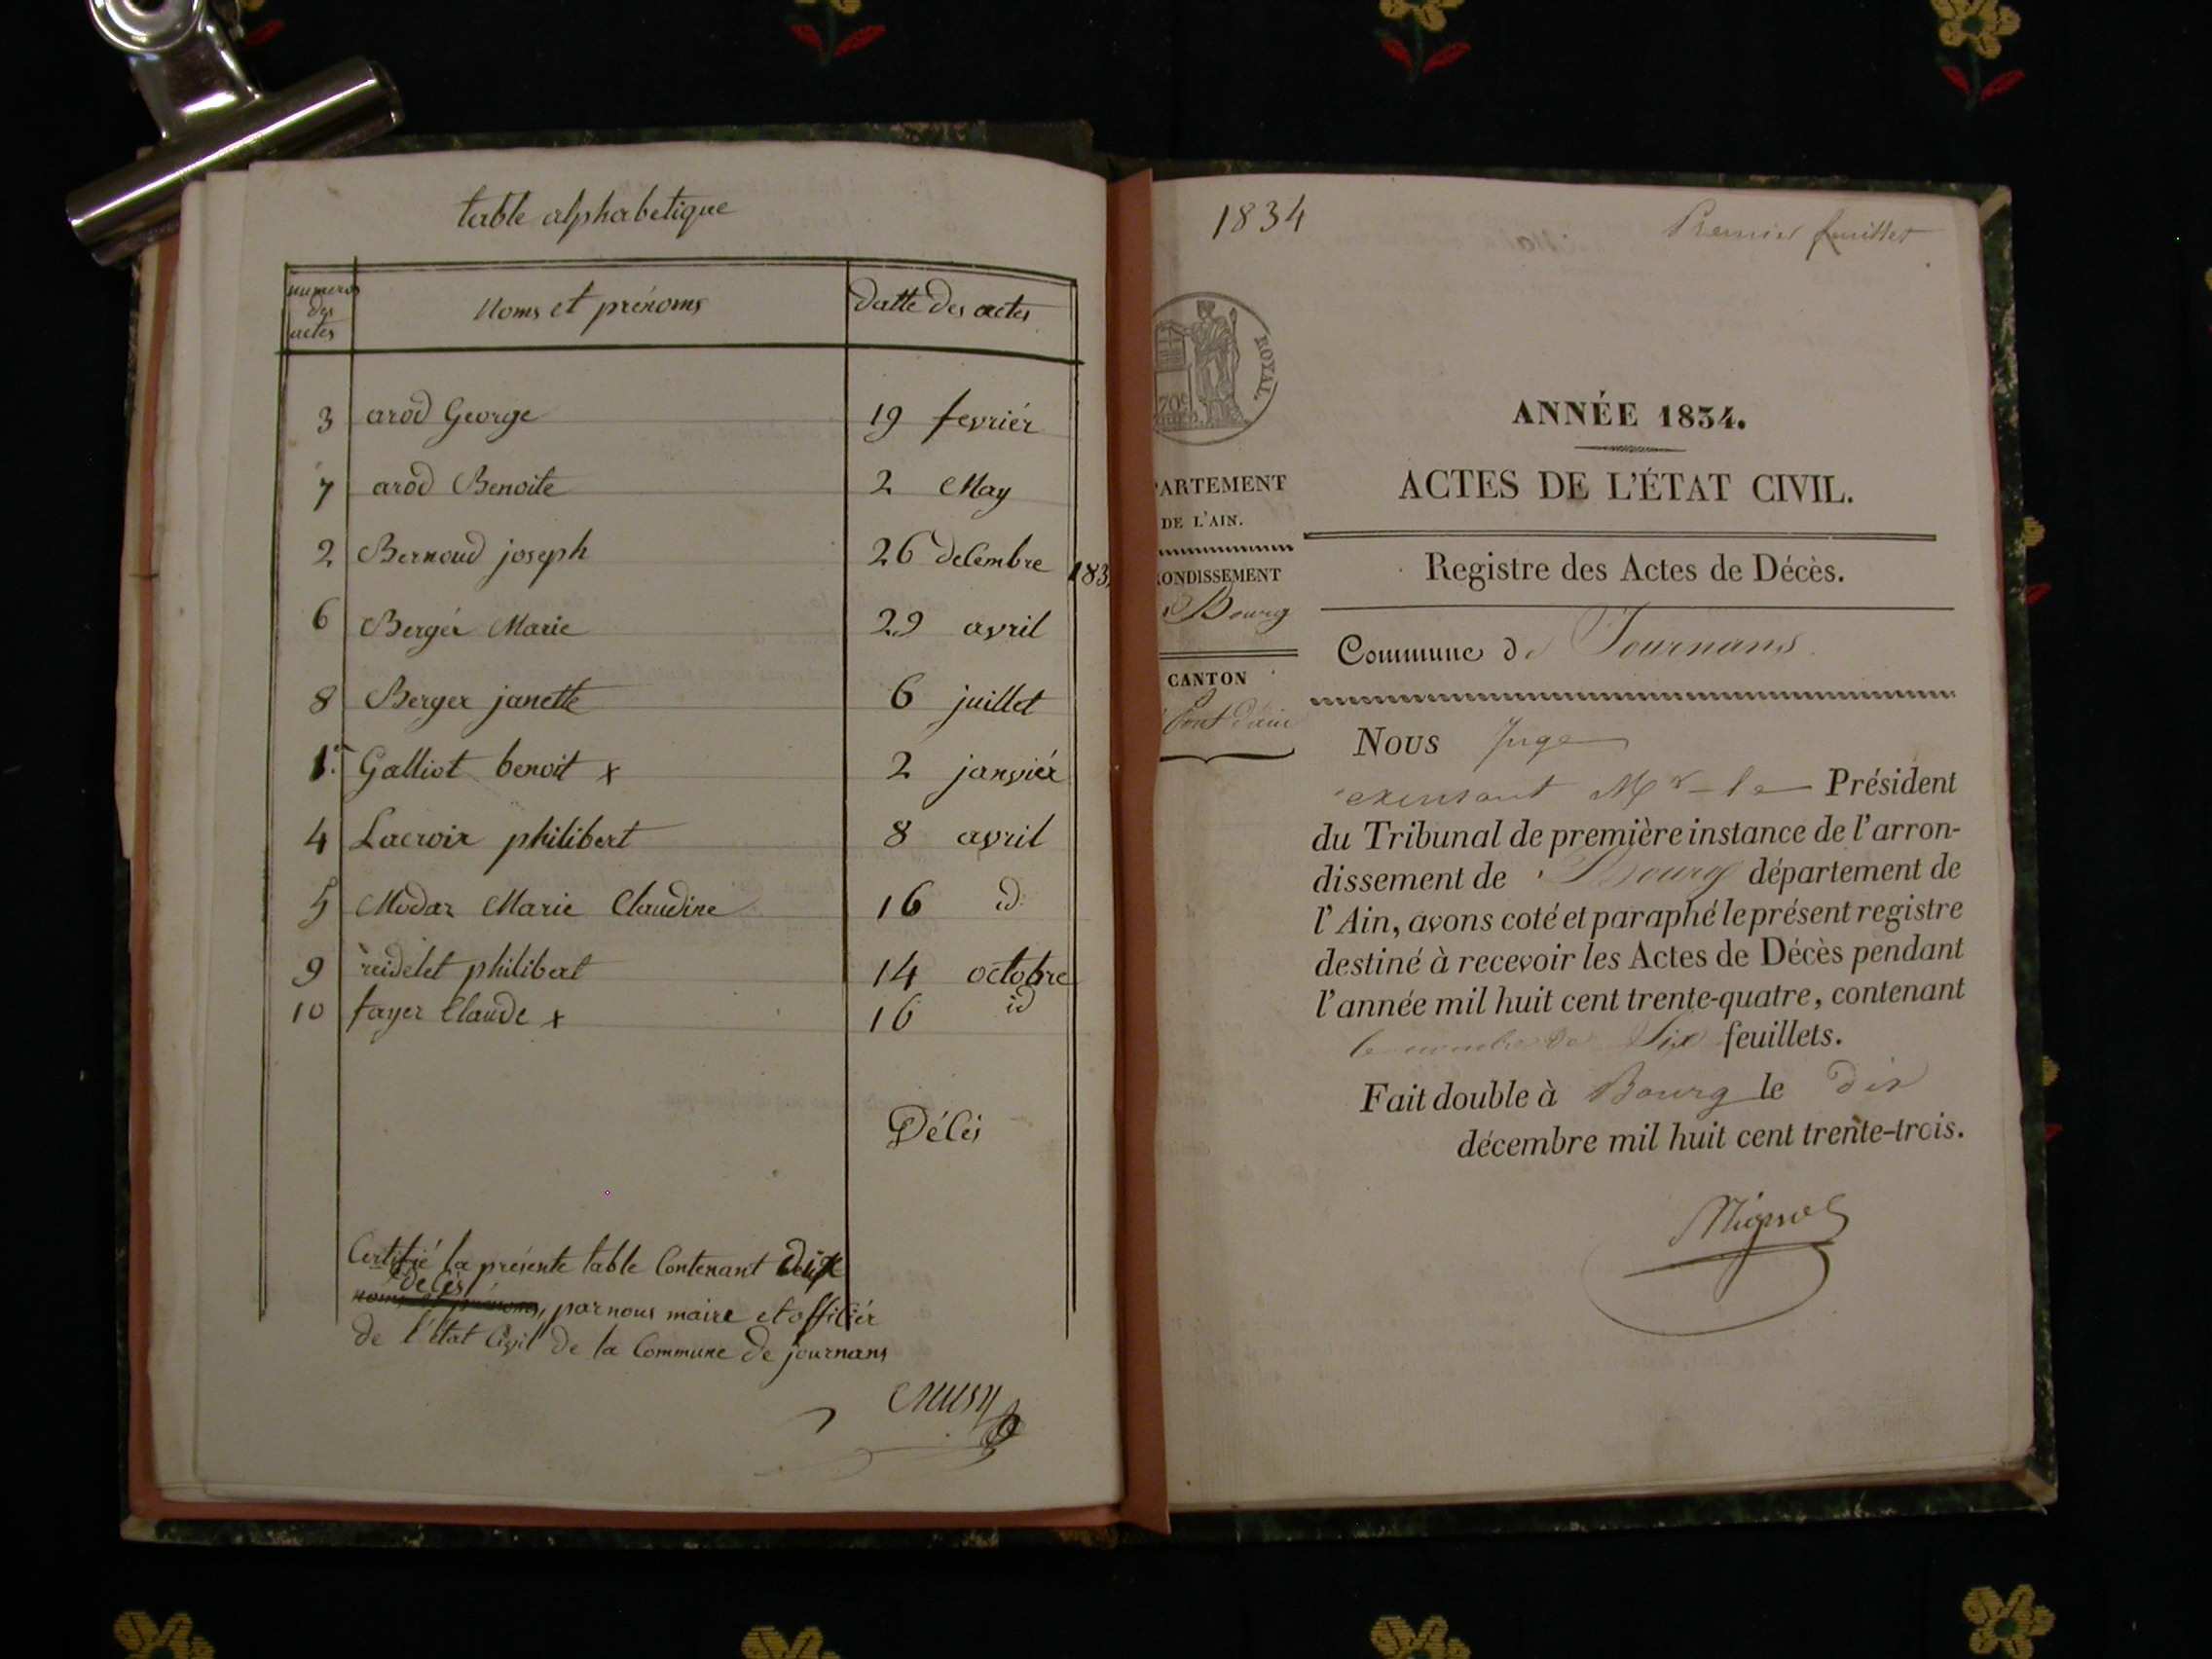 table alphabetique
numeros des actes
Noms et prénoms
datte des actes
3 arod George 19 fevriér
7 arod Benoite 2 May
2 Bernoud joseph 26 decembre 183
6 Bergér Marie 29 avril
8 Berger janette 6 juillet
1er Galliot benoit x 2 janviér
4 Lacroix philibert 8 avril
5 Modaz Marie Claudine 16 id
9 reidelet philibert 14 octobre
10 fayer Claude x 16 id
Décés
Certifié la présente table Contenant
décés
noms et prénoms, par nous maire et officiér
de l'état Civil de la Commune de journans
1834
Premier feuillet
ROYAL
70c
PARTEMENT
DE L'AIN.
ONDISSEMENT
Bourg
CANTON
Pont d'ain
ANNÉE 1834.
ACTES DE L'ÉTAT CIVIL.
Registre des Actes de Décès.
Commune de Journans
Nous juge
exerçant Mr le Président
du Tribunal de première instance de l'arron-
dissement de Bourg département de
l'Ain, avons coté et paraphé le présent registre
destiné à recevoir les Actes de Décès pendant
l'année mil huit cent trente-quatre, contenant
le nombre de Six feuillets.
Fait double à Bourg le dix
décembre mil huit cent trente-trois.